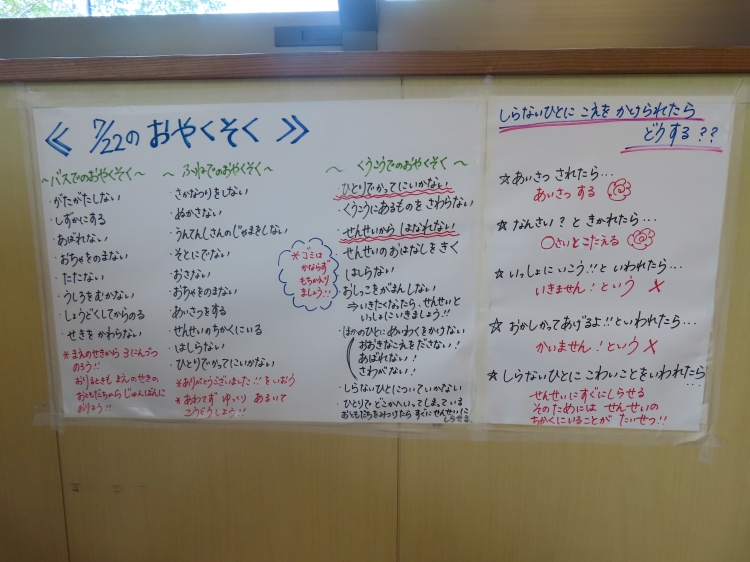 ≪ 7/22の おやくそく ≫
～バスでのおやくそく～
・がたがたしない
・しずかにする
・あばれない
・おちゃをのまない
・たたない
・うしろをむかない
・しょうどくしてからのる
・せきを かわらない
*まえのせきから 3にんづつ
のろう!!
おりるときも まえのせきの
おともだちから じゅんばんに
おりよう!!
～ふねでのおやくそく～
・さかなつりをしない
・ぬかさない
・うんてんしさんのじゃまをしない
・そとにでない
・おさない
・おちゃをのまない
・あいさつをする
・せんせいのちかくにいる
・はしらない
・ひとりでかってにいかない
*ありがとうございました!!をいおう
*あわてず ゆっくり あるいて
こうどうしよう!!
*ゴミは
かならず
もちかえり
ましょう!!
～くうこうでのおやくそく～
・ひとりでかってにいかない
・くうこうにあるものを さわらない
・せんせいから はなれない
・せんせいのおはなしを きく
・はしらない
・おしっこをがまんしない
⇒いきたくなったら、せんせいと
いっしょにいきましょう!!
・ほかのひとに めいわくをかけない
おおきなこえを ださない!
あばれない!
さわがない!
・しらないひとについていかない
・ひとりでどこかへいってしまっている
おともだちをみつけたら すぐにせんせいに
しらせる
しらないひとに こえを かけられたら
どうする??
☆あいさつ されたら…
あいさつ する
☆なんさい?と きかれたら…
〇さいとこたえる
☆いっしょに いこう!!と いわれたら…
いきません!という ×
☆おかしかってあげるよ!!といわれたら…
かいません!という ×
☆しらないひとに こわいことをいわれたら…
せんせいにすぐにしらせる
そのためには せんせいの
ちかくにいることが たいせつ!!